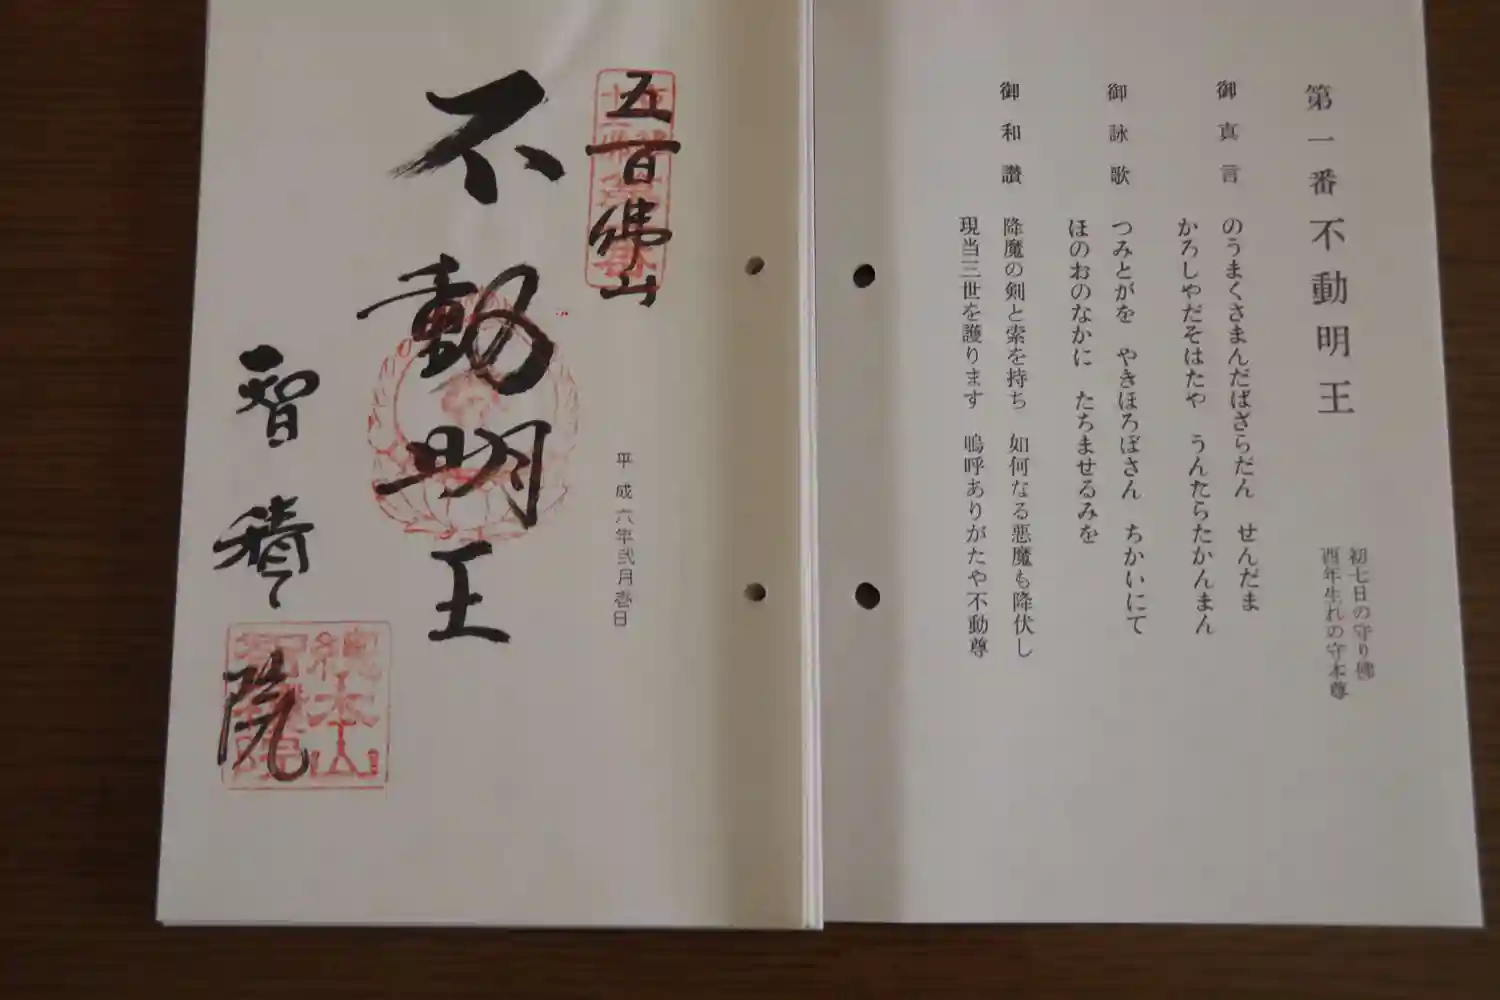 第一番 不動明王
初七日の守り佛
酉年生れの守本尊
御真言
のうまくさまんだばざらだん せんだま
かろしやだそはたや うんたらたかんまん
御詠歌
つみとがを やきほろぼさん ちかいにて
ほのおのなかに たちませるみを
御和讃
降魔の剣と索を持ち 如何なる悪魔も降伏し
現当三世を護ります 嗚呼ありがたや不動尊
五百佛山
平成六年弐月壱日
不動明王
智積院
總本山